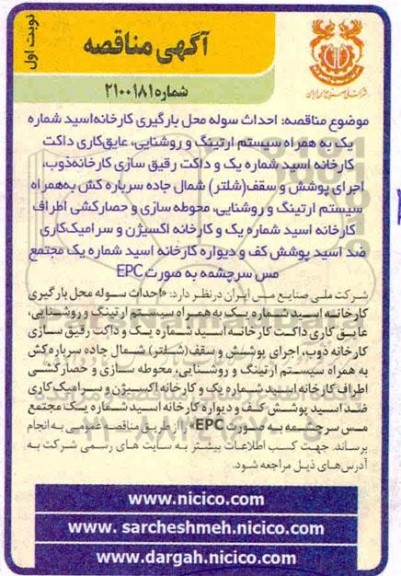 نوبت اول
آگهی مناقصه
شماره ۲۱۰۰۱۸۱
شرکت ملی صنایع مس ایران
موضوع مناقصه: احداث سوله محل بارگیری کارخانه اسید شماره
یک به همراه سیستم ارتینگ و روشنایی، عایق‌کاری داکت
کارخانه اسید شماره یک و داکت رقیق سازی کارخانه‌ذوب،
اجرای پوشش و سقف(شلتر) شمال جاده سرباره کش به‌همراه
سیستم ارتینگ و روشنایی، محوطه سازی و حصارکشی اطراف
کارخانه اسید شماره یک و کارخانه اکسیژن و سرامیک‌کاری
ضد اسید پوشش کف و دیواره کارخانه اسید شماره یک مجتمع
مس سرچشمه به صورت EPC
شرکت ملی صنایع مس ایران درنظر دارد: «احداث سوله محل بارگیری
کارخانه اسید شماره یک به همراه سیستم ارتینگ و روشنایی،
عایق کاری داکت کارخانه اسید شماره یک و داکت رقیق سازی
کارخانه ذوب، اجرای پوشش و سقف(شلتر) شمال جاده سرباره کش
به همراه سیستم ارتینگ و روشنایی، محوطه سازی و حصارکشی
اطراف کارخانه اسید شماره یک و کارخانه اکسیژن و سرامیک کاری
ضد اسید پوشش کف و دیواره کارخانه اسید شماره یک مجتمع
مس سرچشمه به صورت EPC» را از طریق مناقصه عمومی به انجام
برساند. جهت کسب اطلاعات بیشتر به سایت های رسمی شرکت به
آدرس‌های ذیل مراجعه شود.
www.nicico.com
www. sarcheshmeh.nicico.com
www.dargah.nicico.com